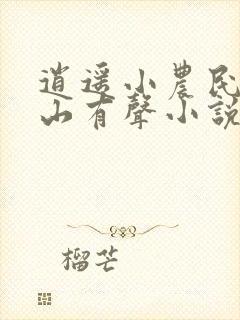 逍遥小農民
山有聲小說
榴芒